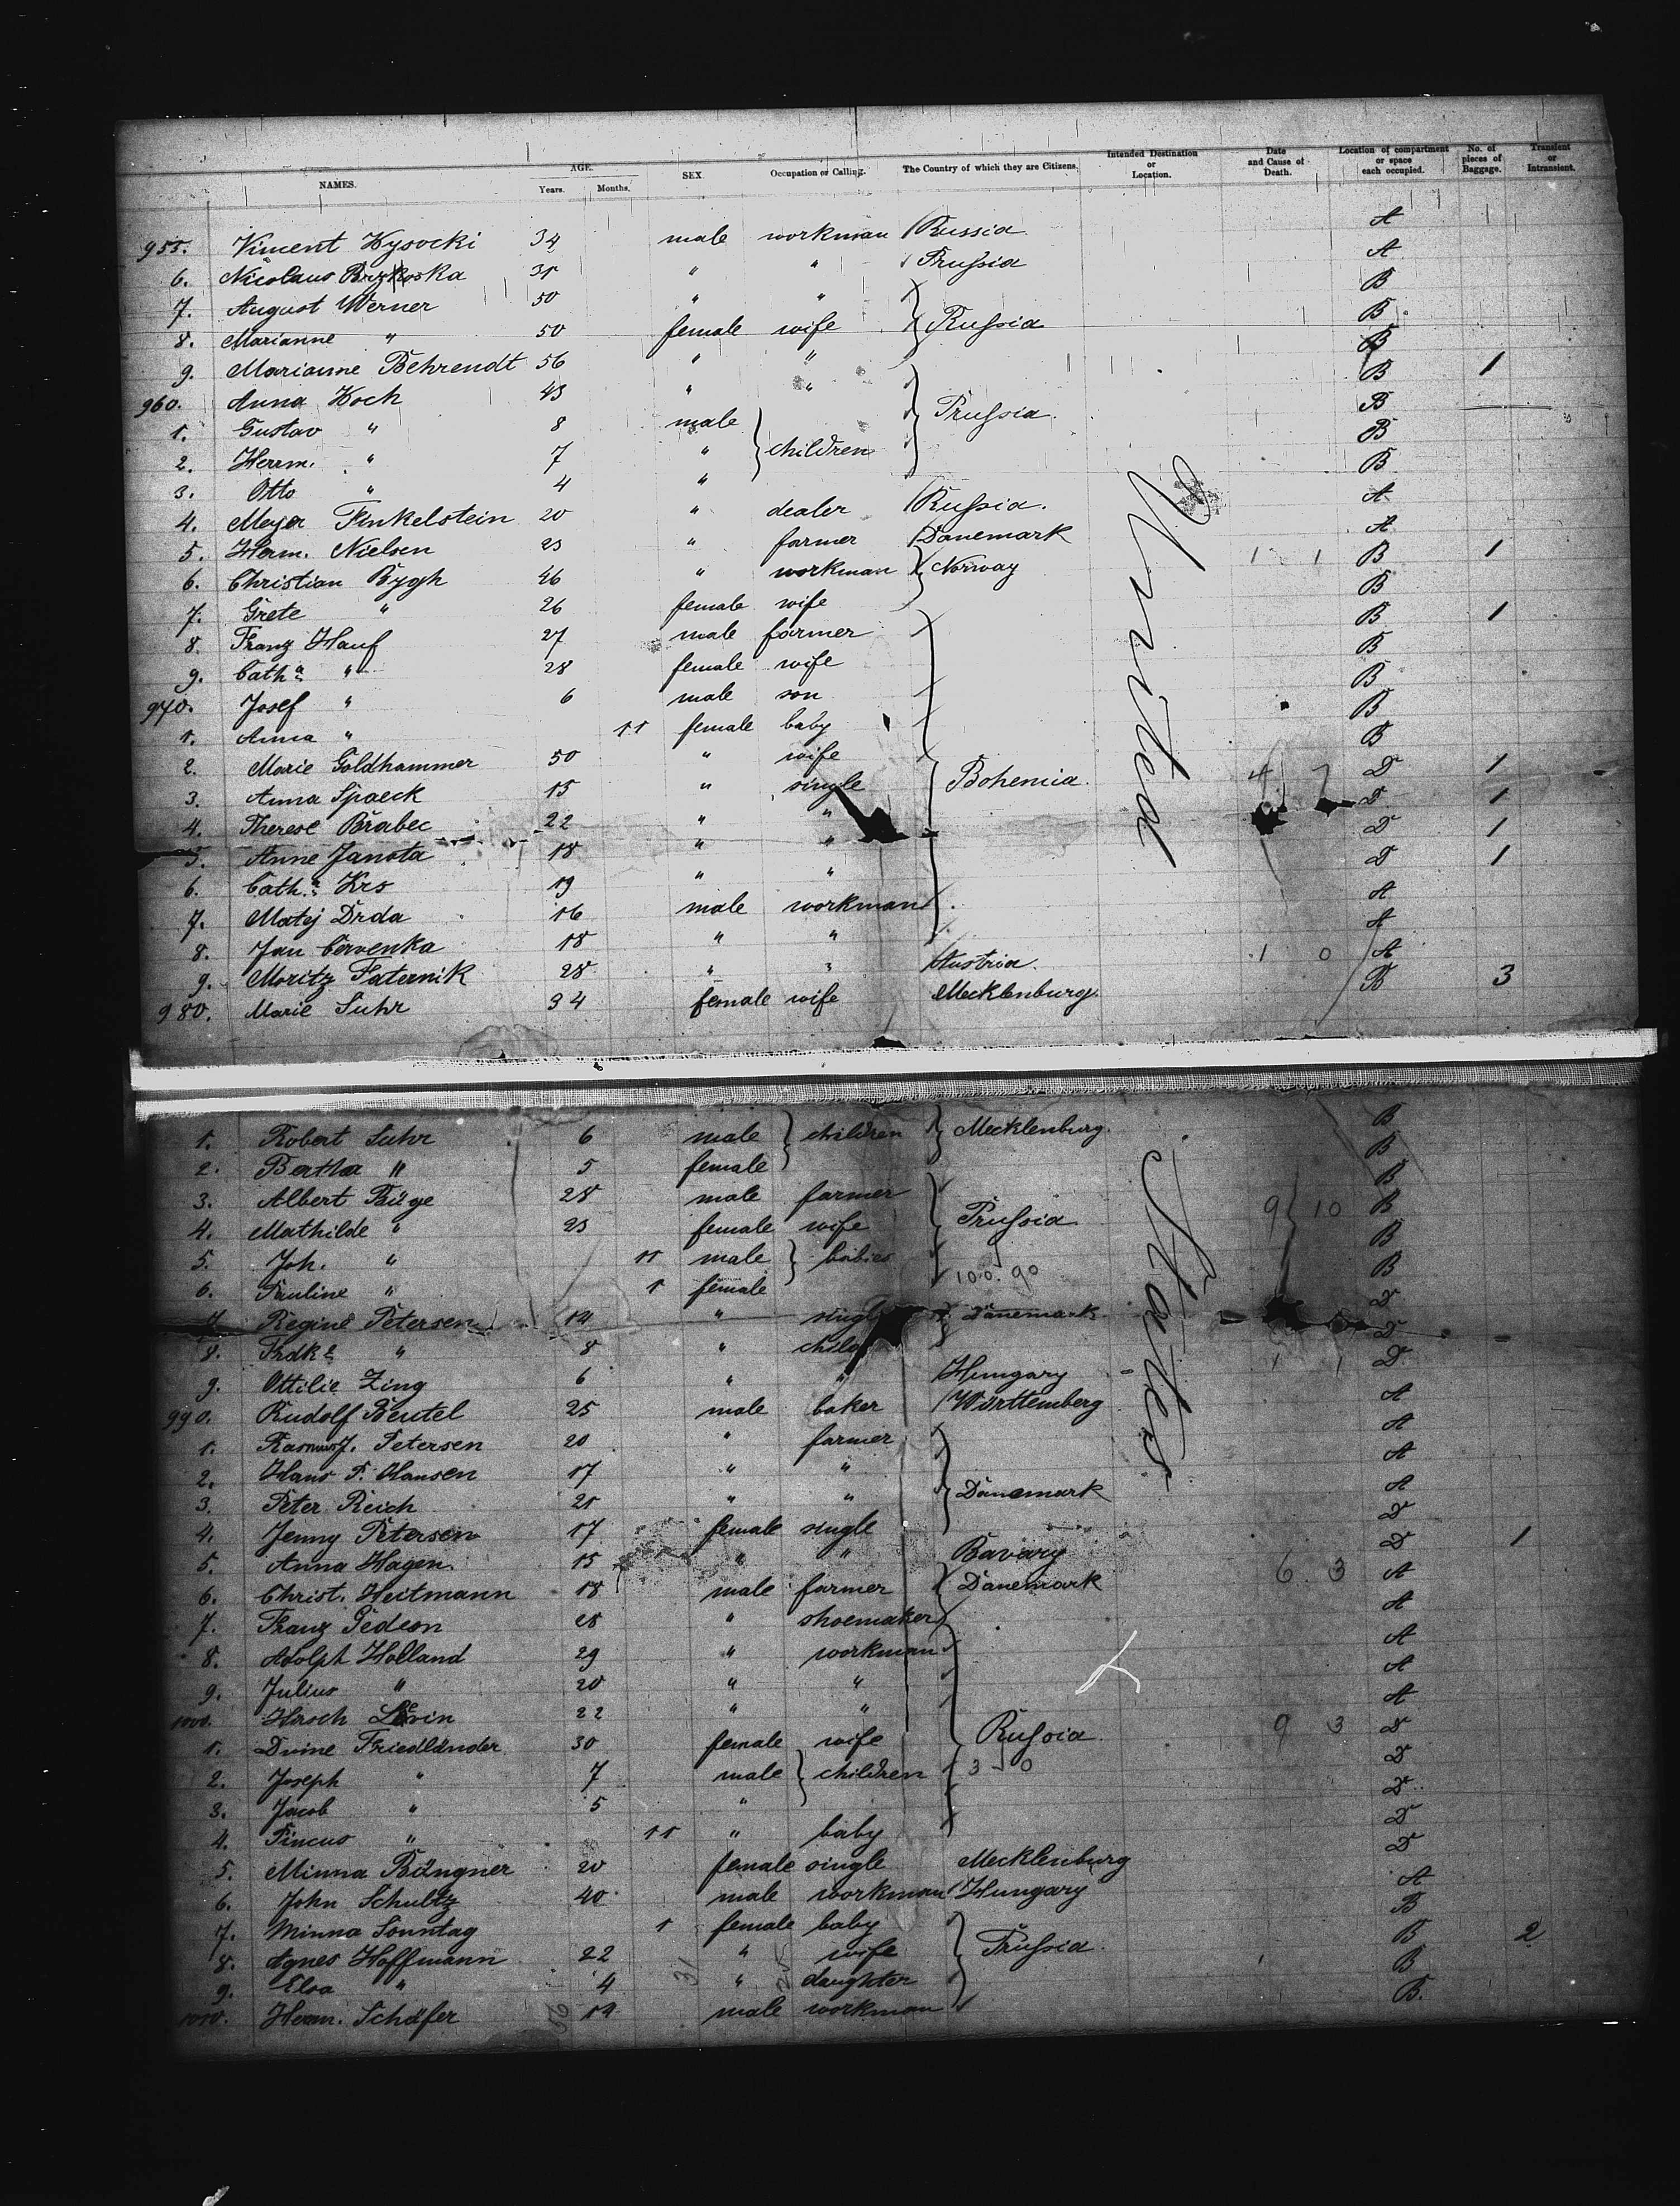 NAMES. AGE. Years. Months. SEX. Occupation or Calling. The Country of which they are Citizens. Intended Destination or Location. Date and Cause of Death. Location of compartment or space each occupied. No. of pieces of Baggage. Transient or Intransient.
955. Vincent Wysocki 34 male workman Russia A
6. Nicolaus 31 " " Prussia A
7. August Werner 50 " " B
8. Marianne " 50 female wife Russia B
9. Marianne Behrendt 56 " " B
960. Anna Koch 43 " " B 1
1. Gustav " 8 male Prussia B
2. Herrm. " 7 " children B
3. Otto " 4 " B
4. Meyer Finkelstein 20 " dealer Russia. A
5. Herm. Nielsen 23 " farmer Dänemark A
6. Christian Bygh 26 " workman Norway 1 1 B 1
7. Grete " 26 female wife B
8. Franz Hauf 27 male farmer B 1
9. Cath.a " 28 female wife B
970. Josef " 6 male son B
1. Anna " 11 female baby B
2. Marie Goldhammer 50 " wife B
3. Anna Spaeck 15 " single Bohemia. 4 7 D 1
4. Therese Brabec 22 " " D 1
5. Anne Janota 18 " " D 1
6. Cath.a Krs 19 " " D 1
7. Matej Drda 16 male workman A
8. Jan Cervenka 18 " " A
9. Moritz Faternik 28 " " Austria. 1 0 A
980. Marie Suhr 34 female wife Mecklenburg. B 3
United
1. Robert Suhr 6 male children Mecklenburg. B
2. Bertha " 5 female B
3. Albert Büge 28 male farmer B
4. Mathilde " 23 female wife Prussia 9 10 B
5. Joh. " 11 male babies B
6. Pauline " 1 female 100. 90 B
7. Regine Petersen 14 " single Dänemark D
8. Frdke " 8 " child D
9. Ottilie Zing 6 " " Hungary 1 1 D
990. Rudolf Beutel 25 male baker Württemberg A
1. Rasmus J. Petersen 20 " farmer A
2. Hans P. Hansen 17 " " A
3. Peter Reich 21 " " Dänemark A
4. Jenny Petersen 17 female single D
5. Anna Hagen 15 " " Bavary D 1
6. Christ. Heitmann 18 male farmer Dänemark 6 3 A
7. Franz Gedeon 28 " shoemaker A
8. Adolph Holland 29 " workman A
9. Julius " 20 " " A
1000. Hirsch Levin 22 " " A
1. Dvine Friedländer 30 female wife Russia. 9 3 D
2. Joseph " 7 male children D
3. Jacob " 5 " D
4. Pincus " 11 " baby D
5. Minna Büngner 20 female single Mecklenburg D
6. John Schultz 40 male workman Hungary A
7. Minna Sonntag 1 female baby B
8. Agnes Hoffmann 22 " wife Prussia. B 2
9. Elsa " 4 " daughter B
1010. Herm. Schäfer 19 male workman B.
States